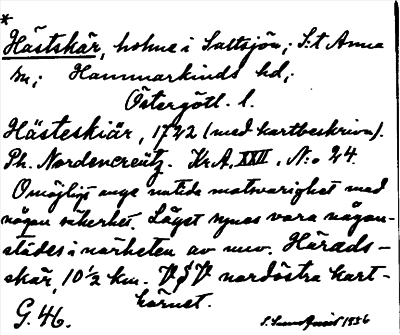 *
Hästskär, holme i Saltsjön; S:t Anna
sn; Hammarkinds hd;
Östergötl. l.
Hästeskiär, 1722 (med kartbeskrivn).
Ph. Nordencreütz. Kr.A. XXII, N:o 24.
Omöjligt ange nutida motsvarighet med
någon säkerhet. Läget synes vara någon-
städes i närheten av nuv. Härads-
skär, 10½ km. V nordöstra kart-
hörnet.
G. 46.
1936